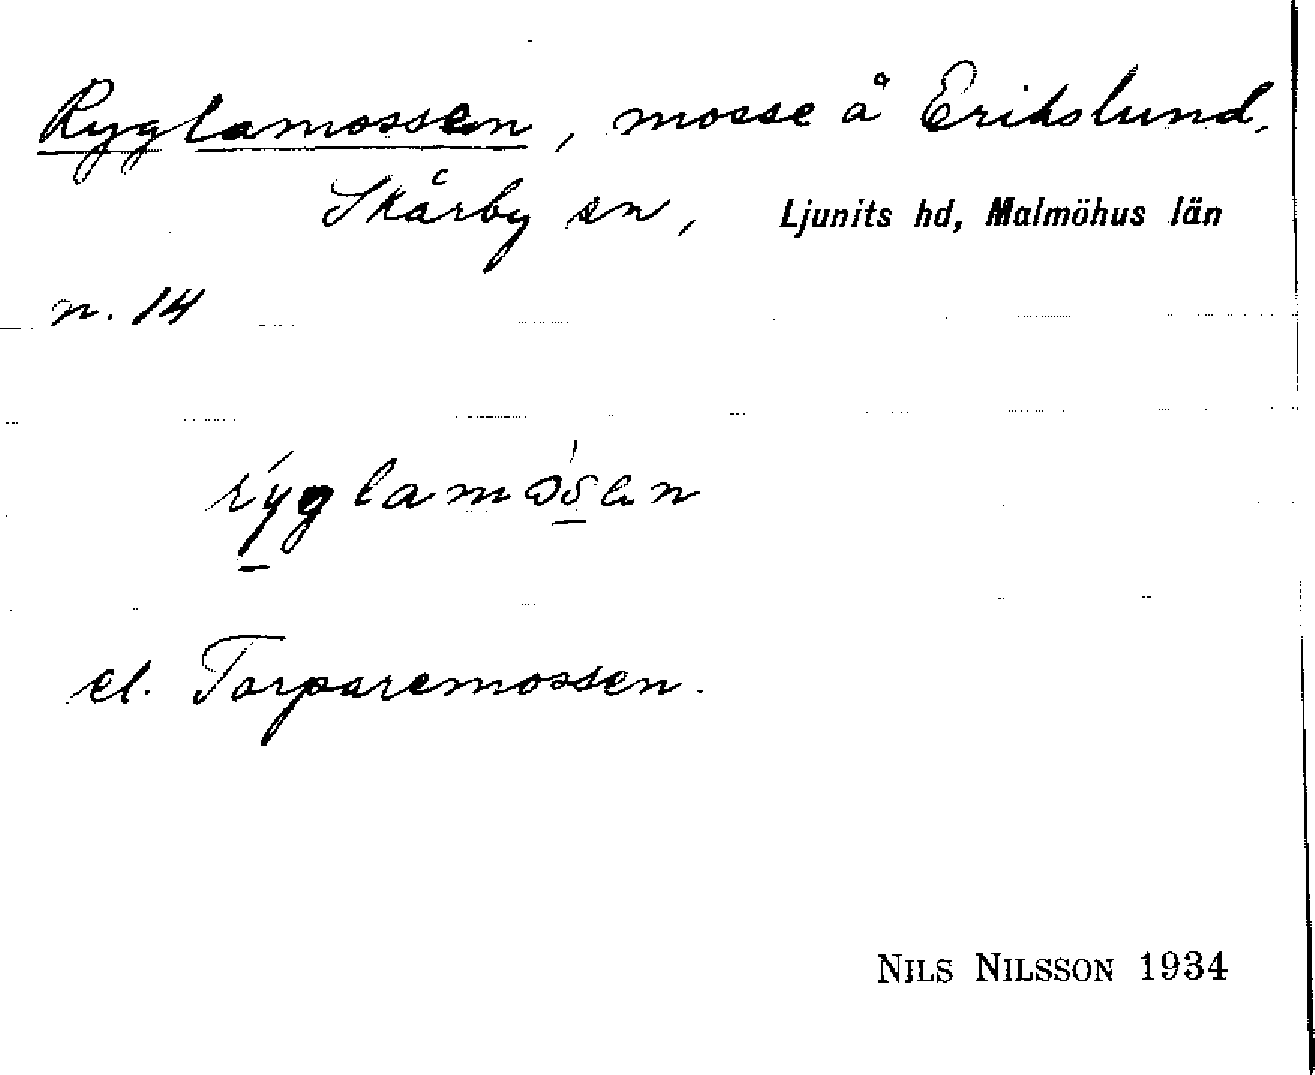 Ryglamossen, mosse å Erikslund,
Skårby sn, Ljunits hd, Malmöhus län
n. 14
rýglamɔ́sen
el. Torparemossen.
NILS NILSSON 1934